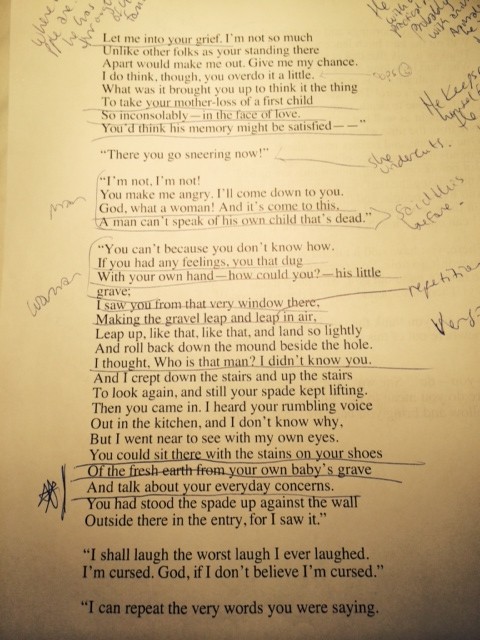 Let me into your grief. I'm not so much
Unlike other folks as your standing there
Apart would make me out. Give me my chance.
I do think, though, you overdo it a little.
oops
What was it brought you up to think it the thing
To take your mother-loss of a first child
So inconsolably—in the face of love.
You'd think his memory might be satisfied— —"
He keeps
the
"There you go sneering now!"
she undercuts.
"I'm not, I'm not!
You make me angry. I'll come down to you.
man
God, what a woman! And it's come to this,
A man can't speak of his own child that's dead."
said this
before-
"You can't because you don't know how.
If you had any feelings, you that dug
woman
With your own hand—how could you?—his little
grave;
repetition
I saw you from that very window there,
Making the gravel leap and leap in air,
Leap up, like that, like that, and land so lightly
And roll back down the mound beside the hole.
I thought, Who is that man? I didn't know you.
And I crept down the stairs and up the stairs
To look again, and still your spade kept lifting.
Then you came in. I heard your rumbling voice
Out in the kitchen, and I don't know why,
But I went near to see with my own eyes.
You could sit there with the stains on your shoes
Of the fresh earth from your own baby's grave
And talk about your everyday concerns.
You had stood the spade up against the wall
Outside there in the entry, for I saw it."
"I shall laugh the worst laugh I ever laughed.
I'm cursed. God, if I don't believe I'm cursed."
"I can repeat the very words you were saying.